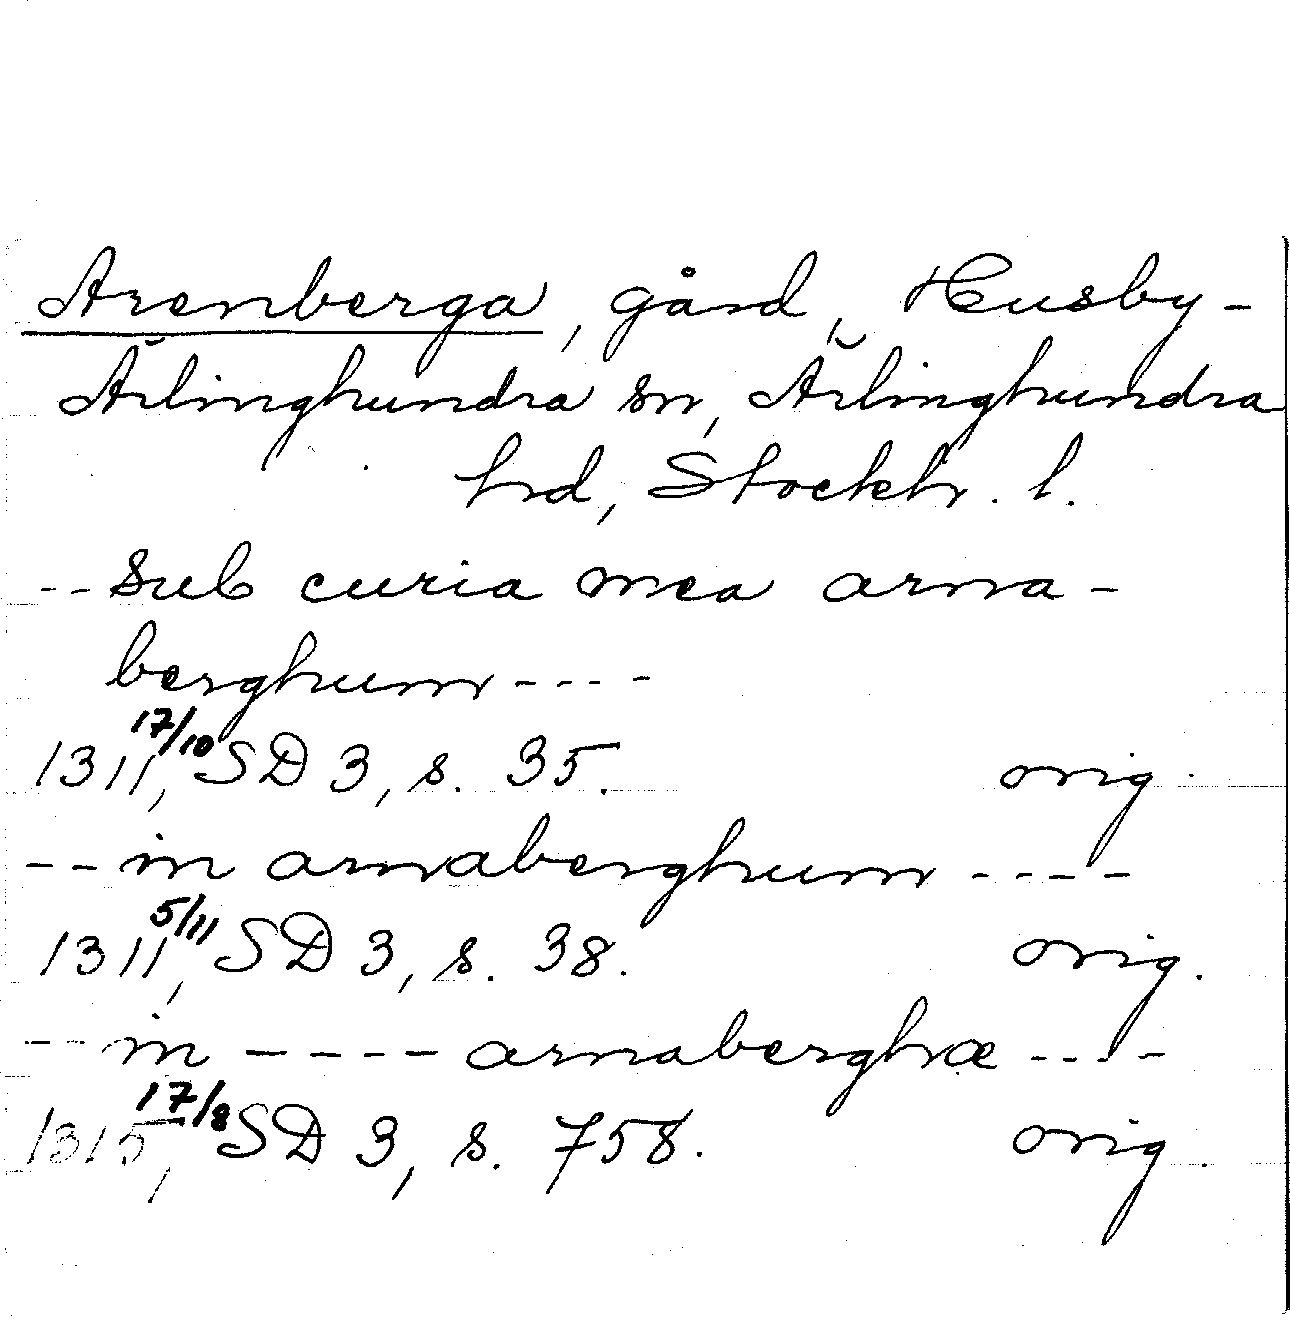 Arenberga, gård, Husby-
Ärlinghundra sn, Ärlinghundra
hd, Stockh. l.
-- sub curia mea arna-
berghum ----
1311 17/10, SD 3, s. 35. orig.
-- in arnaberghum ----
1311 5/11, SD 3, s. 38. orig.
-- in ---- arnaberghæ ----
1315 17/8, SD 3, s. 758. orig.